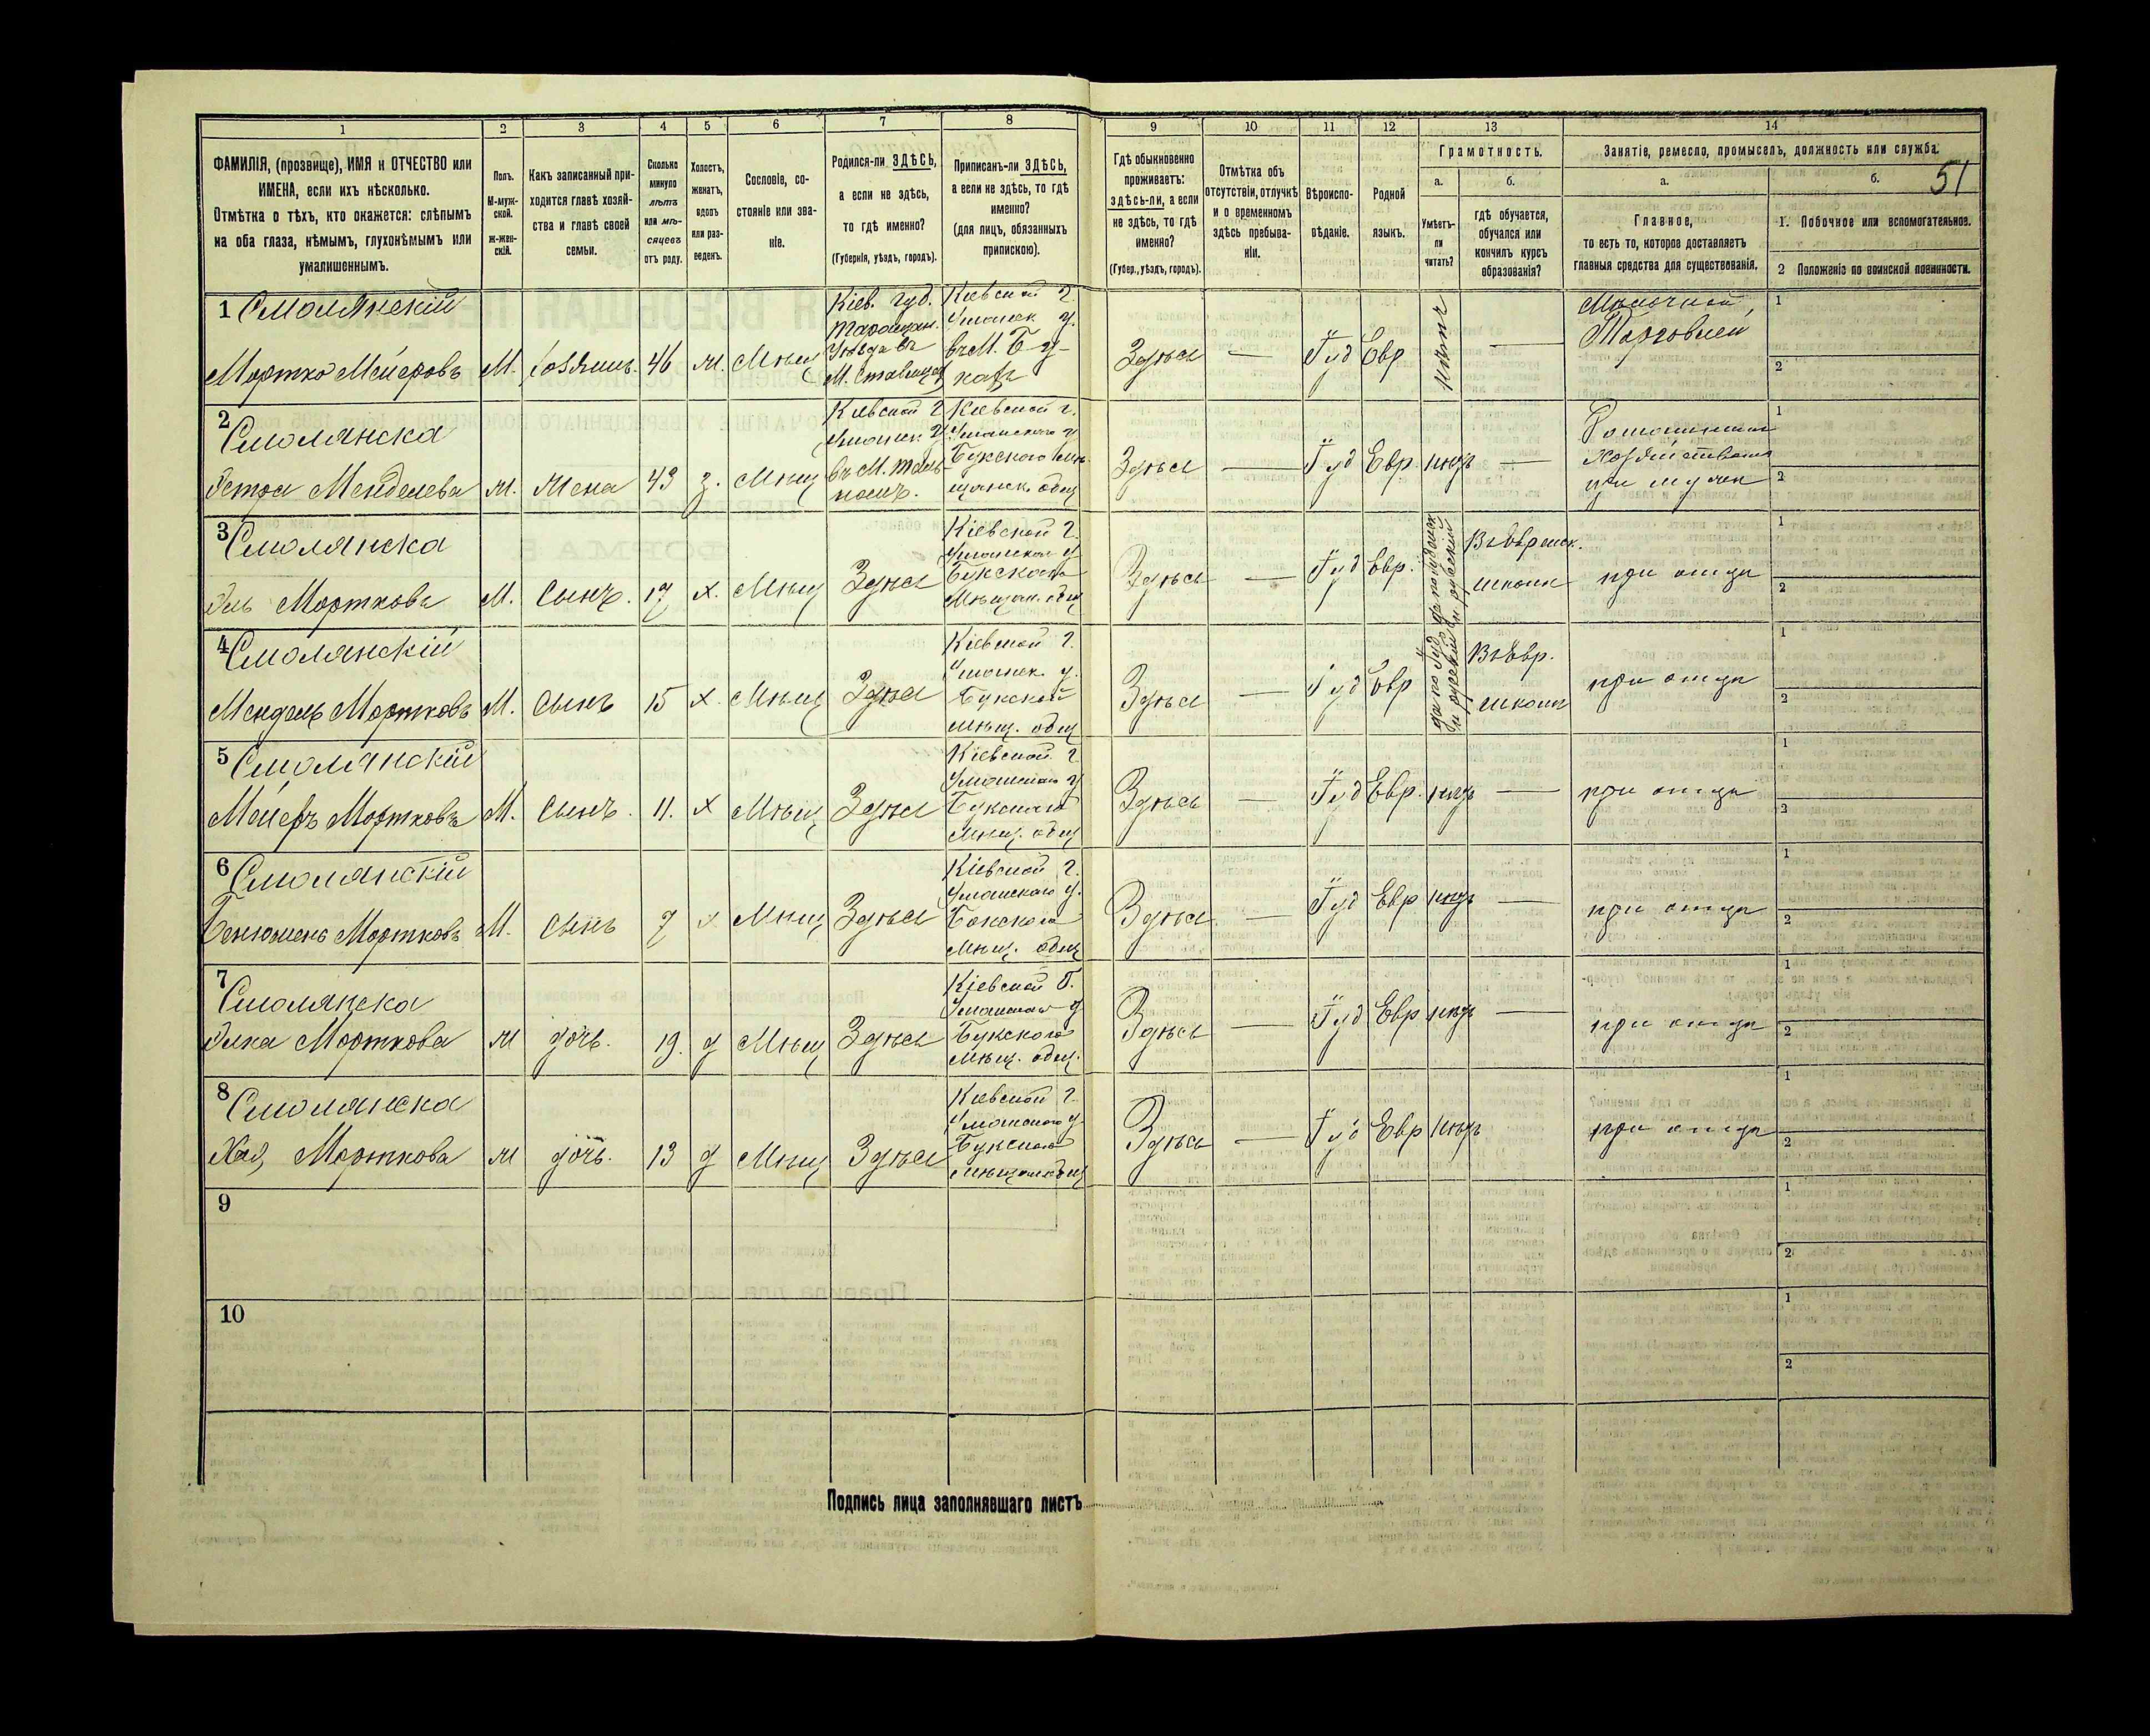 1 2 3 4 5 6 7 8 9 10 11 12 13 14
ФАМИЛІЯ, (прозвище), ИМЯ и ОТЧЕСТВО или
ИМЕНА, если ихъ нѣсколько.
Отмѣтка о тѣхъ, кто окажется: слѣпымъ
на оба глаза, нѣмымъ, глухонѣмымъ или
умалишеннымъ.
Полъ.
М-муж-
ской.
ж-жен-
скій.
Какъ записанный при-
ходится главѣ хозяй-
ства и главѣ своей
семьи.
Сколько
минуло
лѣтъ
или мѣ-
сяцевъ
отъ роду.
Холостъ,
женатъ,
вдовъ
или раз-
веденъ.
Сословіе, со-
стояніе или зва-
ніе.
Родился-ли ЗДѢСЬ,
а если не здѣсь,
то гдѣ именно?
(Губернія, уѣздъ, городъ).
Приписанъ-ли ЗДѢСЬ,
а если не здѣсь, то гдѣ
именно?
(для лицъ, обязанныхъ
припискою).
Гдѣ обыкновенно
проживаетъ:
здѣсь-ли, а если
не здѣсь, то гдѣ
именно?
(Губер., уѣздъ, городъ).
Отмѣтка объ
отсутствіи, отлучкѣ
и о временномъ
здѣсь пребыва-
ніи.
Вѣроиспо-
вѣданіе.
Родной
языкъ.
Грамотность.
а.
Умѣетъ-
ли
читать?
б.
гдѣ обучается,
обучался или
кончилъ курсъ
образованія?
Занятіе, ремесло, промыселъ, должность или служба.
а.
Главное,
то есть то, которое доставляетъ
главныя средства для существованія.
б.
51
1. Побочное или вспомогательное.
2 Положеніе по воинской повинности.
1 Смолянскій
Мортко Мейеровъ М. хозяинъ. 46 ж. Мѣщ
Кіев. губ.
Таращан.
уѣзда въ
М. Ставищах
Кіевской г.
Уманск у.
въ М. Бу-
кахъ
Здѣсь — Іуд Евр нѣтъ —
Мелочной
Торговлей
1
2
2
Смолянска
Эстра Менделева ж. Жена 43 з. Мѣщ
Кіевской г
Уманск. у
въ М. Таль-
номъ.
Кіевской г.
Уманского у
Букского мѣ-
щанск. общ
Здѣсь — Іуд Евр. нѣтъ —
Домашнимъ
хозяйствомъ
при мужѣ
1
2
3
Смолянска
Эль Мортковъ М. Сынъ. 17 х. Мѣщ Здѣсь
Кіевской г.
Уманского у
Букского
Мѣщан. общ
Здѣсь — Іуд Евр.
Въ Еврейск.
школѣ
при отцѣ
1
2
4
Смолянскій
Мендель Мортковъ М. Сынъ 15 х. Мѣщ Здѣсь
Кіевской г.
Уманск. у.
Букской
мѣщ. общ
Здѣсь — Іуд Евр
да по Іуд
и русски
Въ Евр.
школѣ
при отцѣ
1
2
5
Смолянскій
Мейеръ Мортковъ М. Сынъ. 11. х Мѣщ Здѣсь
Кіевской г
Уманского у
Букского
Мѣщ. общ
Здѣсь — Іуд Евр. нѣтъ —
при отцѣ
1
2
6
Смолянскій
Бенюминъ Мортковъ М. Сынъ 7 х Мѣщ Здѣсь
Кіевской г.
Уманского у.
Букского
Мѣщ. общ
Здѣсь — Іуд Евр нѣтъ —
при отцѣ
1
2
7
Смолянска
Элка Морткова ж дочь. 19. д Мѣщ Здѣсь
Кіевской г.
Уманского у
Букского
Мѣщ. общ.
Здѣсь — Іуд Евр нѣтъ —
при отцѣ
1
2
8
Смолянска
Морткова ж дочь. 13 д Мѣщ Здѣсь
Кіевской г.
Уманского у
Букского
Мѣщан общ
Здѣсь — Іуд Евр нѣтъ
при отцѣ
1
2
9
1
2
10
1
2
Подпись лица заполнявшаго листъ